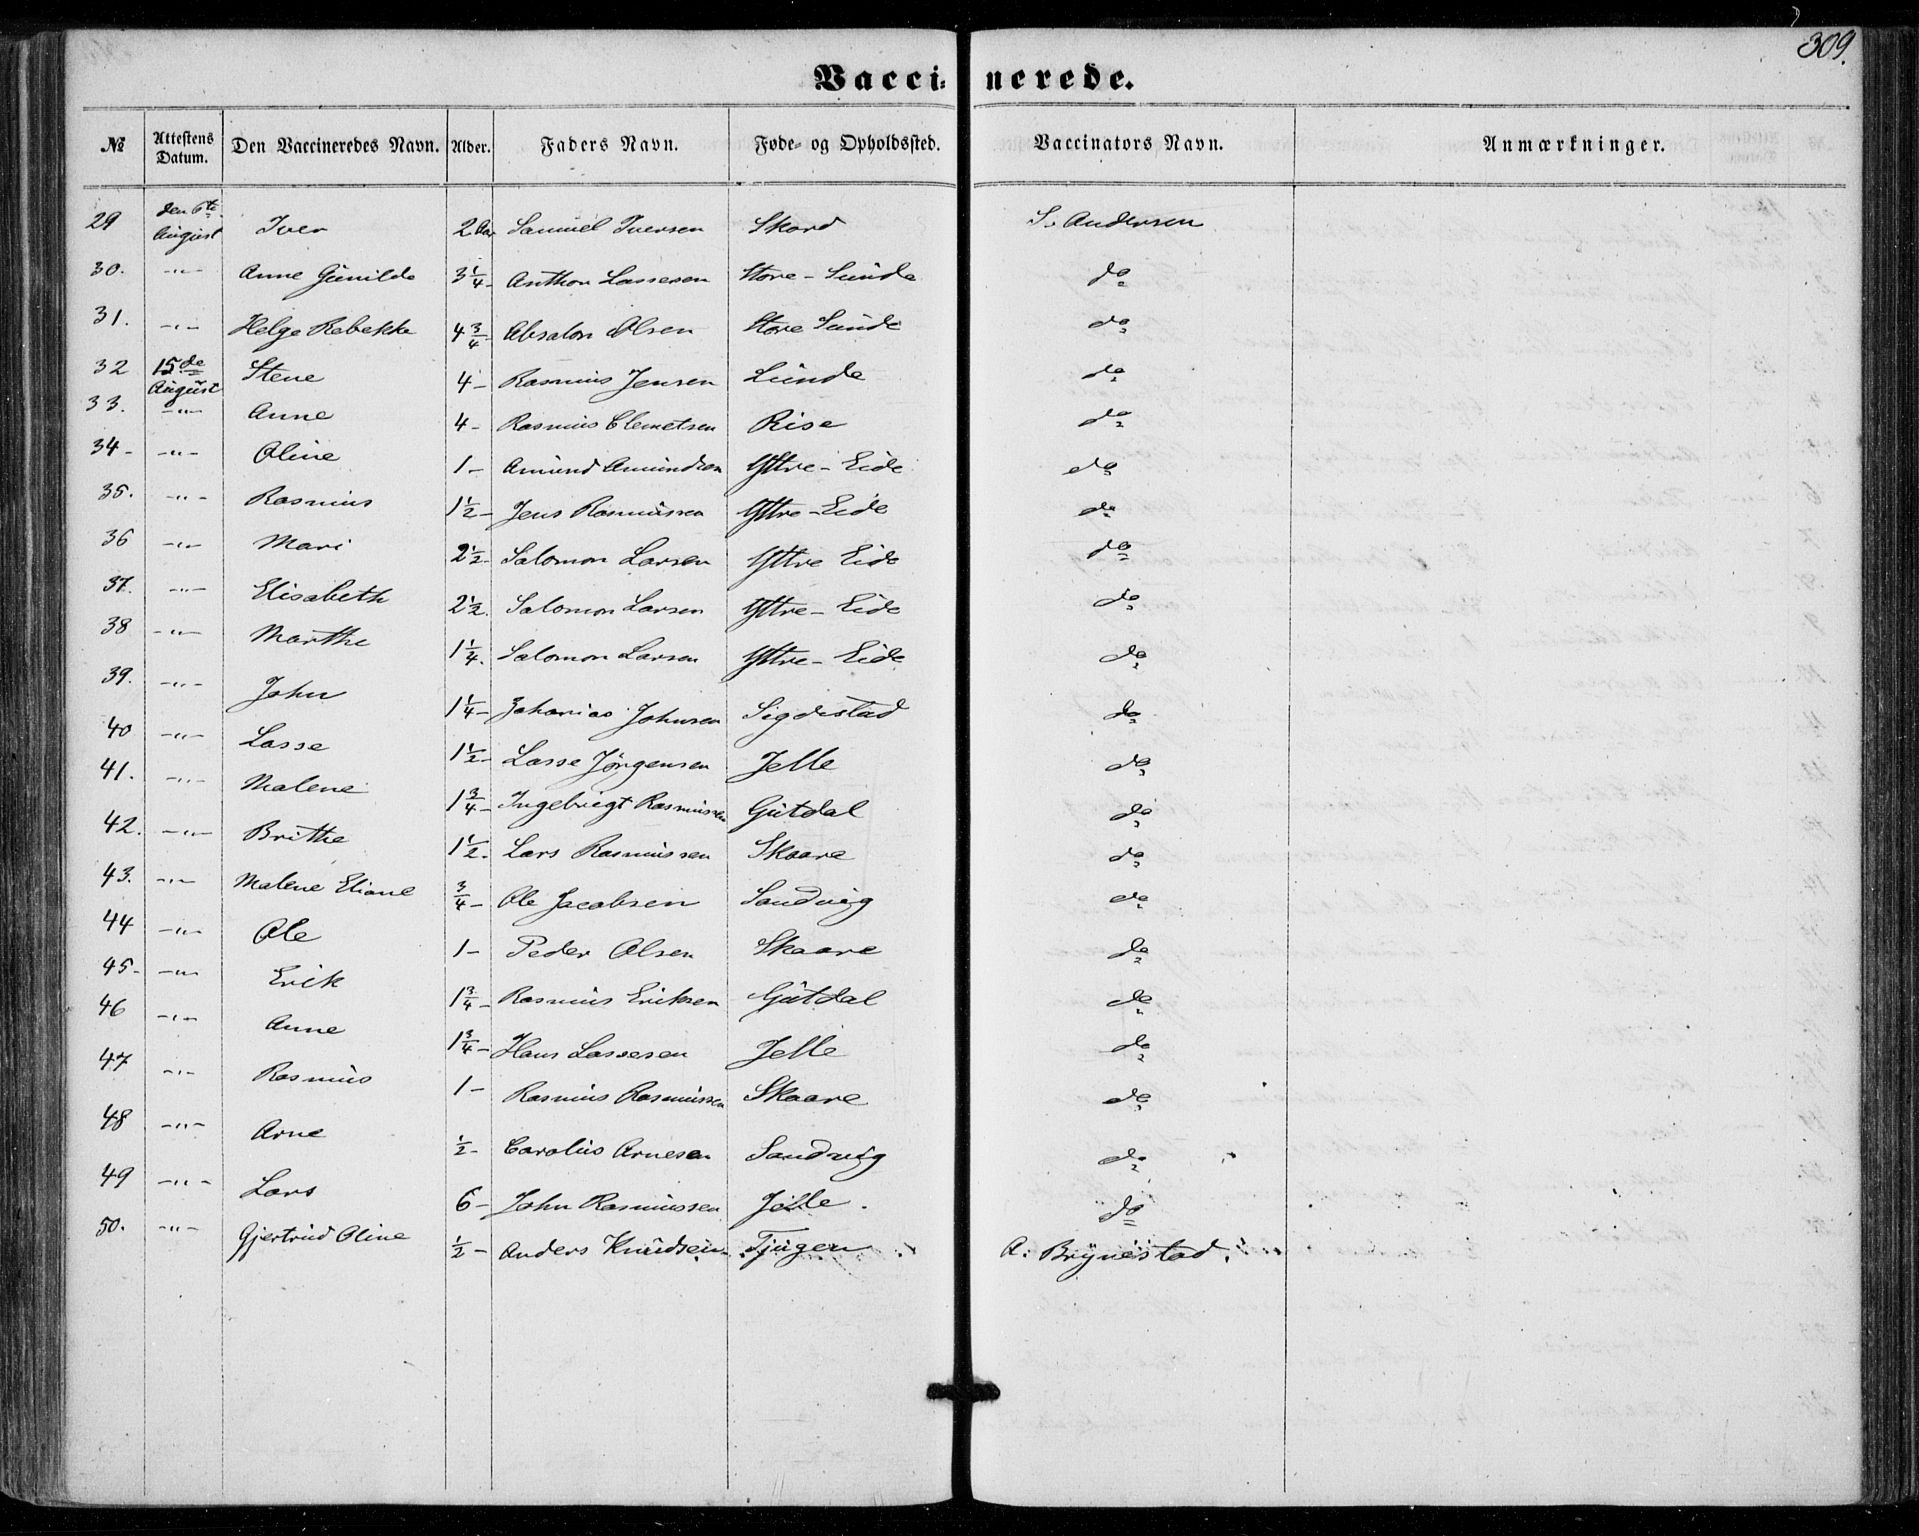 309.
Vaccinerede.
№ Attestens Datum. Den Vaccineredes Navn. Alder. Faders Navn. Føde- og Opholdssted. Vaccinators Navn. Anmærkninger.
29 den 6te August Iver 2 Aar Samuel Iversen Skord S. Andersen
30. -"- Anne Gunilde 3 1/4 - Anthon Lassesen Store-Sunde do
31. -"- Helge Rebekke 4 3/4 - Absalon Olsen Store Sunde do
32 15de August Stene 4 - Rasmus Jensen Lunde do
33. -"- Anne 4 - Rasmus Clemetsen Rise do
34 - -"- Oline 1 - Amund Amundsen Yttre-Eide do
35. -"- Rasmus 1 1/2 - Jens Rasmussen Yttre-Eide do
36 -"- Mari 2 1/2 - Salomon Larsen Yttre Eide do
37. -"- Elisabeth 2 1/2. Salomon Larsen Yttre-Eide do
38 -"- Marthe 1 1/4. Salomon Larsen Yttre-Eide do
39. -"- John 1 1/4 - Zakarias Johnsen Sigdestad do
40 -"- Lasse 1 1/2 - Lasse Jørgensen Jelle do
41. -"- Malene 1 3/4 - Ingebrigt Rasmussen Gutdal do
42. -"- Brithe 1 1/2. Lars Rasmussen Skaare do
43. -"- Malene Eliane 3/4 - Ole Jacobsen Sandvig do
44 -"- Ole 1 - Peder Olsen Skaare do
45 - -"- Erik 1 3/4 - Rasmus Eriksen Gutdal do
46 -"- Anne 1 3/4 - Hans Lassesen Jelle do
47 -"- Rasmus 1 - Rasmus Rasmussen Skaare do
48 -"- Arne 1/2 - Carolus Arnesen Sandvig do
49 -"- Lars 6 - John Rasmussen Jelle. do
50. -"- Gjertrud Oline 1/2 - Anders Knudsen Tjugen A. Brynestad.